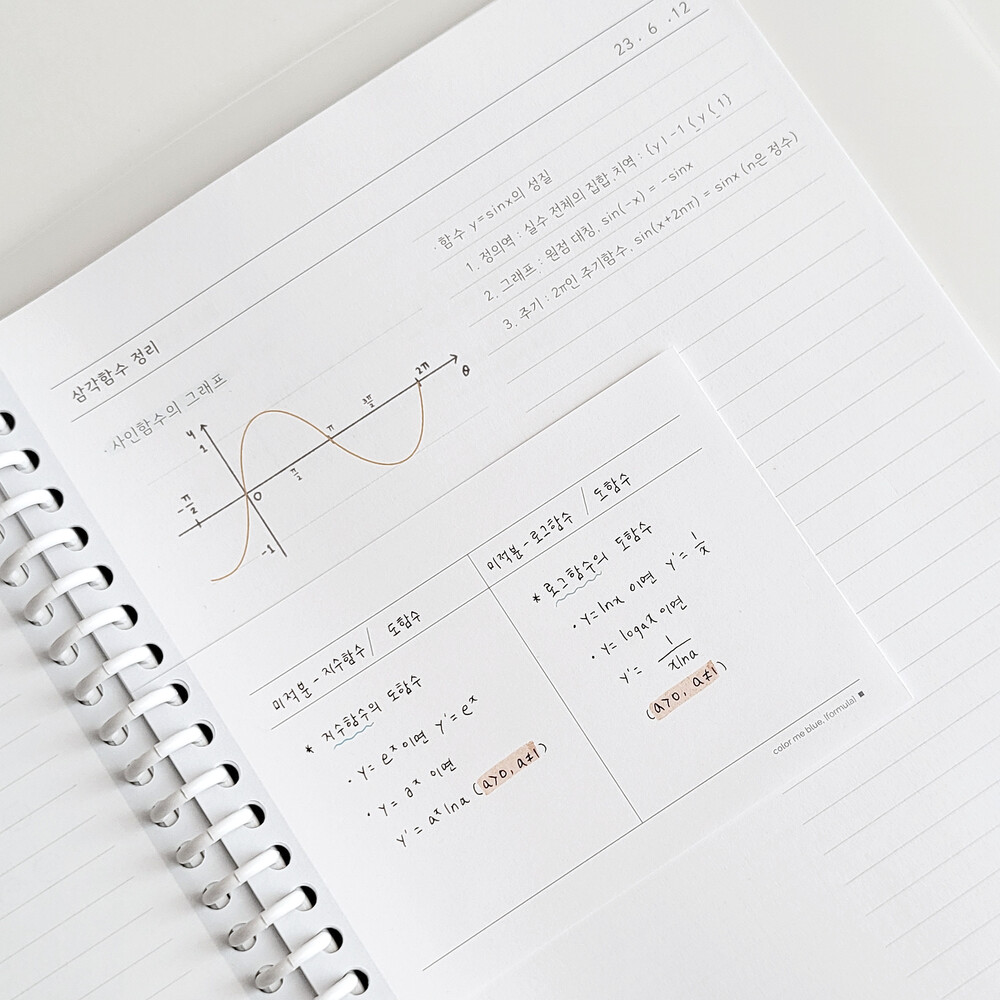 23. 6. 12
삼각함수 정리
· 사인함수의 그래프
y
1
-π/2
O
π/2
π
3π/2
2π
θ
-1
· 함수 y=sinx의 성질
1. 정의역 : 실수 전체의 집합, 치역 : {y|-1≤y≤1}
2. 그래프 : 원점 대칭, sin(-x) = -sinx
3. 주기 : 2π인 주기함수, sin(x+2nπ) = sinx (n은 정수)
미적분 - 지수함수 / 도함수
* 지수함수의 도함수
· y= eˣ 이면 y'= eˣ
· y= aˣ 이면
y' = aˣ lna (a>0, a≠1)
미적분 - 로그함수 / 도함수
* 로그함수의 도함수
· y=lnx 이면 y'= 1/x
· y= logax 이면
y'= 1/xlna
(a>0, a≠1)
color me blue, [formula] ■